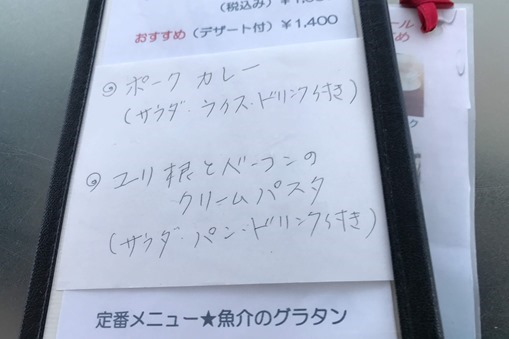 (税込み)
おすすめ (デザート付) ¥1,400
◎ ポーク カレー
(サラダ・ライス・ドリンク付き)
◎ ユリ根とベーコンの
クリームパスタ
(サラダ・パン・ドリンク付き)
定番メニュー★魚介のグラタン